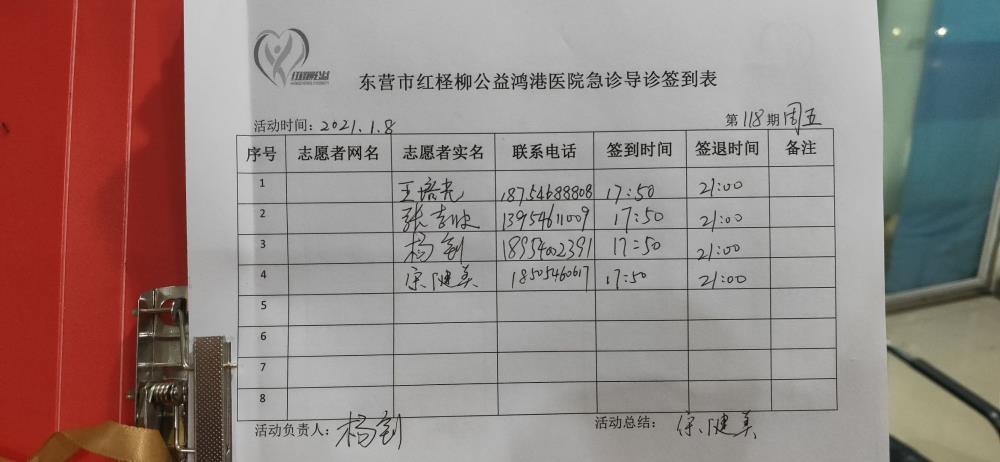 红柽柳公益
东营市红柽柳公益鸿港医院急诊导诊签到表
活动时间: 2021.1.8 第118期 周五
序号 志愿者网名 志愿者实名 联系电话 签到时间 签退时间 备注
1 王培光 18754688808 17:50 21:00
2 张志波 13954611009 17:50 21:00
3 杨剑 18954002391 17:50 21:00
4 宋健美 18505460617 17:50 21:00
5
6
7
8
活动负责人: 杨剑 活动总结: 宋健美